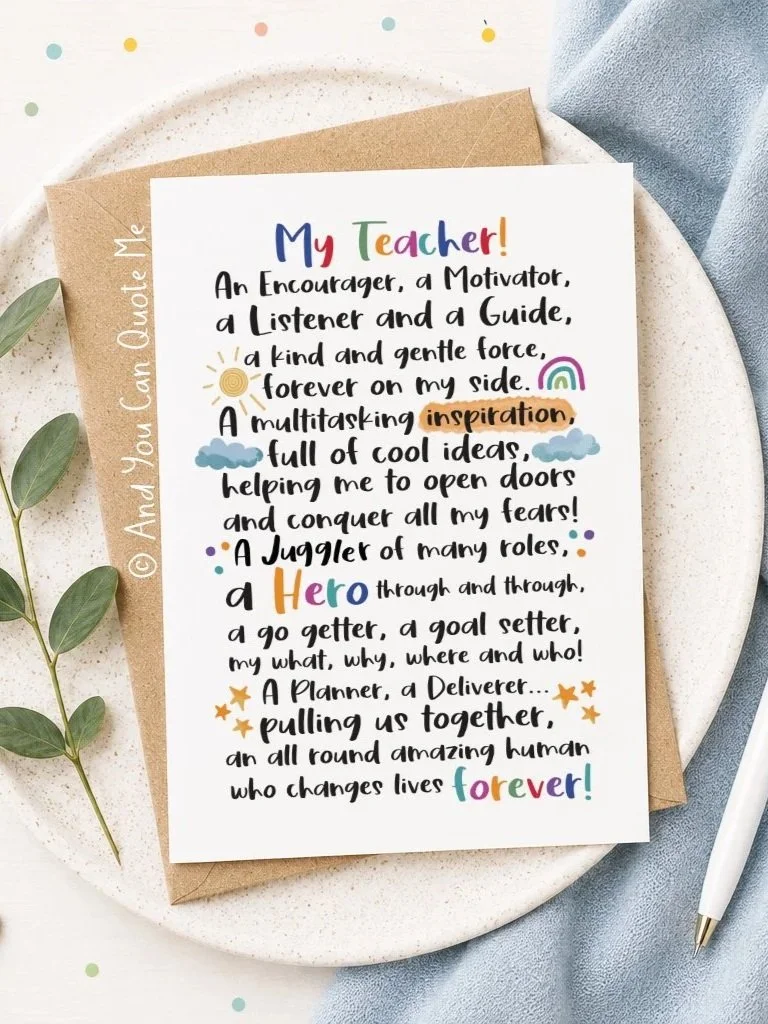 My Teacher!
An Encourager, a Motivator,
a Listener and a Guide,
a kind and gentle force,
forever on my side.
A multitasking inspiration,
full of cool ideas,
helping me to open doors
and conquer all my fears!
A Juggler of many roles,
a Hero through and through,
a go getter, a goal setter,
my what, why, where and who!
A Planner, a Deliverer...
pulling us together,
an all round amazing human
who changes lives forever!
© And You Can Quote Me